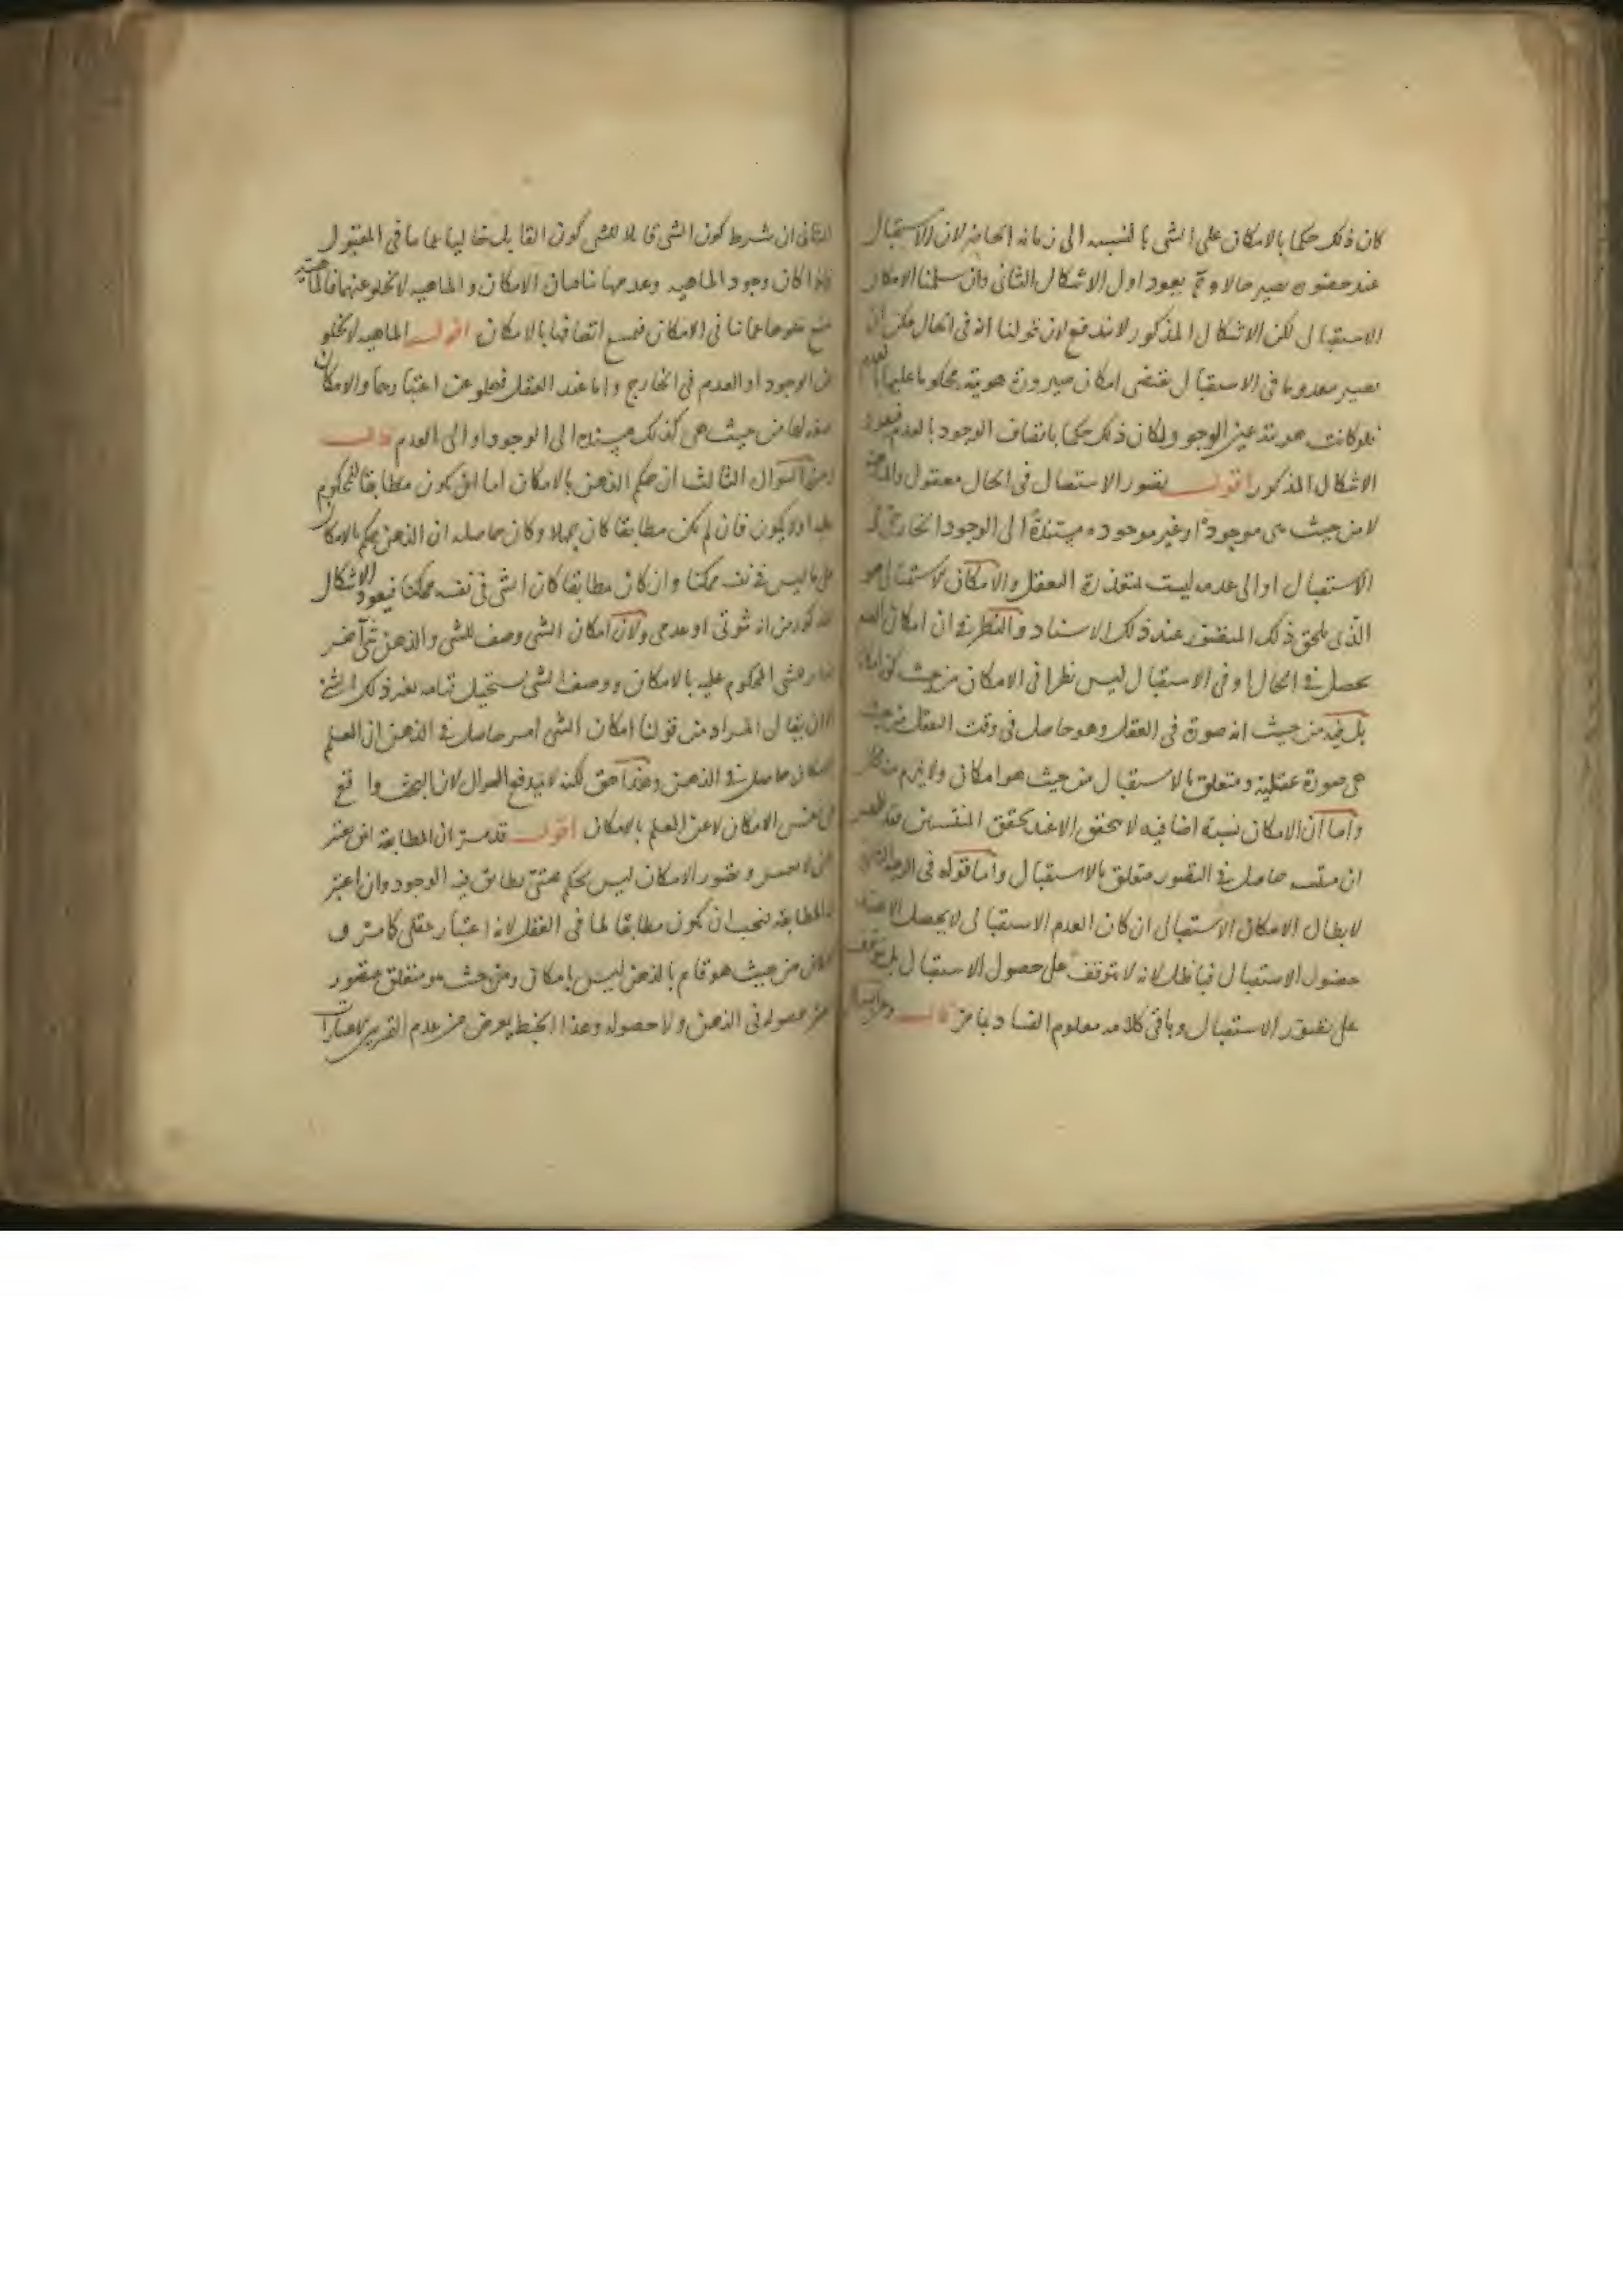 كان ذلك حكما بالامكان على الشى بالنسبه الى زمانه الحاضر لان الاستقبال
عند حضوره يصير حالا وح يعود اول الاشكال الثانى وان سلمنا الامكان
الاستقبالى لكن الاشكال المذكور لا يندفع لان قولنا انه فى الحال يمكن ان
يصير معدوما فى الاستقبال يقتضى امكان صيرورة هويته محكوما عليها بالعدم
فلو كانت هويته عين الوجود لكان ذلك حكما باتصاف الوجود بالعدم فيعود
الاشكال المذكور اقول تصور الاستقبال فى الحال معقول والماهية
لا من حيث هى موجودة او غير موجوده مستندة الى الوجود الخارجى فى
الاستقبال او الى عدمه ليست بمتعذرة التعقل والامكان الاستقبالى هو
الذى يلحق ذلك المتصور عند ذلك الاسناد والنظر فى ان امكان الشى
يحصل فى الحال او فى الاستقبال ليس نظرا فى الامكان من حيث كونه امكانا
بل فيه من حيث انه صورة فى العقل وهو حاصل فى وقت التعقل من حيث
هى صورة عقلية ومتعلق بالاستقبال من حيث هو امكان ولا يلزم منه محال
واما ان الامكان نسبة اضافيه لا يتحقق الا عند تحقق المنتسبين فقد
ان منتسبيه حاصل فى التصور متعلق بالاستقبال واما قوله فى الوجه الثانى
لابطال الامكان الاستقبالى ان كان العدم الاستقبالى لا يحصل الا عند
حصول الاستقبال فباطل لانه لا يتوقف على حصول الاستقبال بل يتوقف
على تصور الاستقبال وباقى كلامه معلوم الفساد مما مر قال وعن السوال
الثانى ان شرط كون الشى قابلا للشى كون القابل خاليا عما ينافى المقبول
فاذا كان وجود الماهيه وعدمها ينافيان الامكان والماهيه لا تخلو عنهما فالماهية
يمتنع خلوها عما ينافى الامكان فيمتنع اتصافها بالامكان اقول الماهيه لا تخلو
عن الوجود او العدم فى الخارج واما عند العقل فتخلو عن اعتبارهما والامكان
صفه لها من حيث هى كذلك مسندة الى الوجود او الى العدم قال
وعن السوال الثالث ان حكم الذهن بالامكان اما ان يكون مطابقا للمحكوم
عليه او لا يكون فان لم يكن مطابقا كان جهلا وكان حاصله ان الذهن يحكم بالامكان
على ما ليس فى نفسه ممكنا وان كان مطابقا كان الشى فى نفسه ممكنا فيعود الاشكال
المذكور من انه ثبوتى او عدمى ولان امكان الشى وصف للشى والذهن شى آخر
مغاير للشى المحكوم عليه بالامكان ووصف الشى يستحيل قيامه بغير ذلك الشى
الا ان يقال المراد من قولنا امكان الشى امر حاصل فى الذهن ان العلم
بالامكان حاصل فى الذهن وهذا حق لكنه لا يدفع السوال لان البحث واقع
عن نفس الامكان لا عن العلم بالامكان اقول قد مر ان المطابقة اين يعتبر
وتصور الامكان ليس بحكم حتى يطابق فيه الوجود وان اعتبر
المطابقه فيجب ان يكون مطابقا لما فى العقل لانه اعتبار عقلى كما مر وان
الامكان من حيث هو قايم بالذهن ليس بامكان ومن حيث هو متعلق بمتصور
عن حصوله فى الذهن ولا حصوله وهذا الخبط يعرض من عدم التمييز بين الاعتبارات